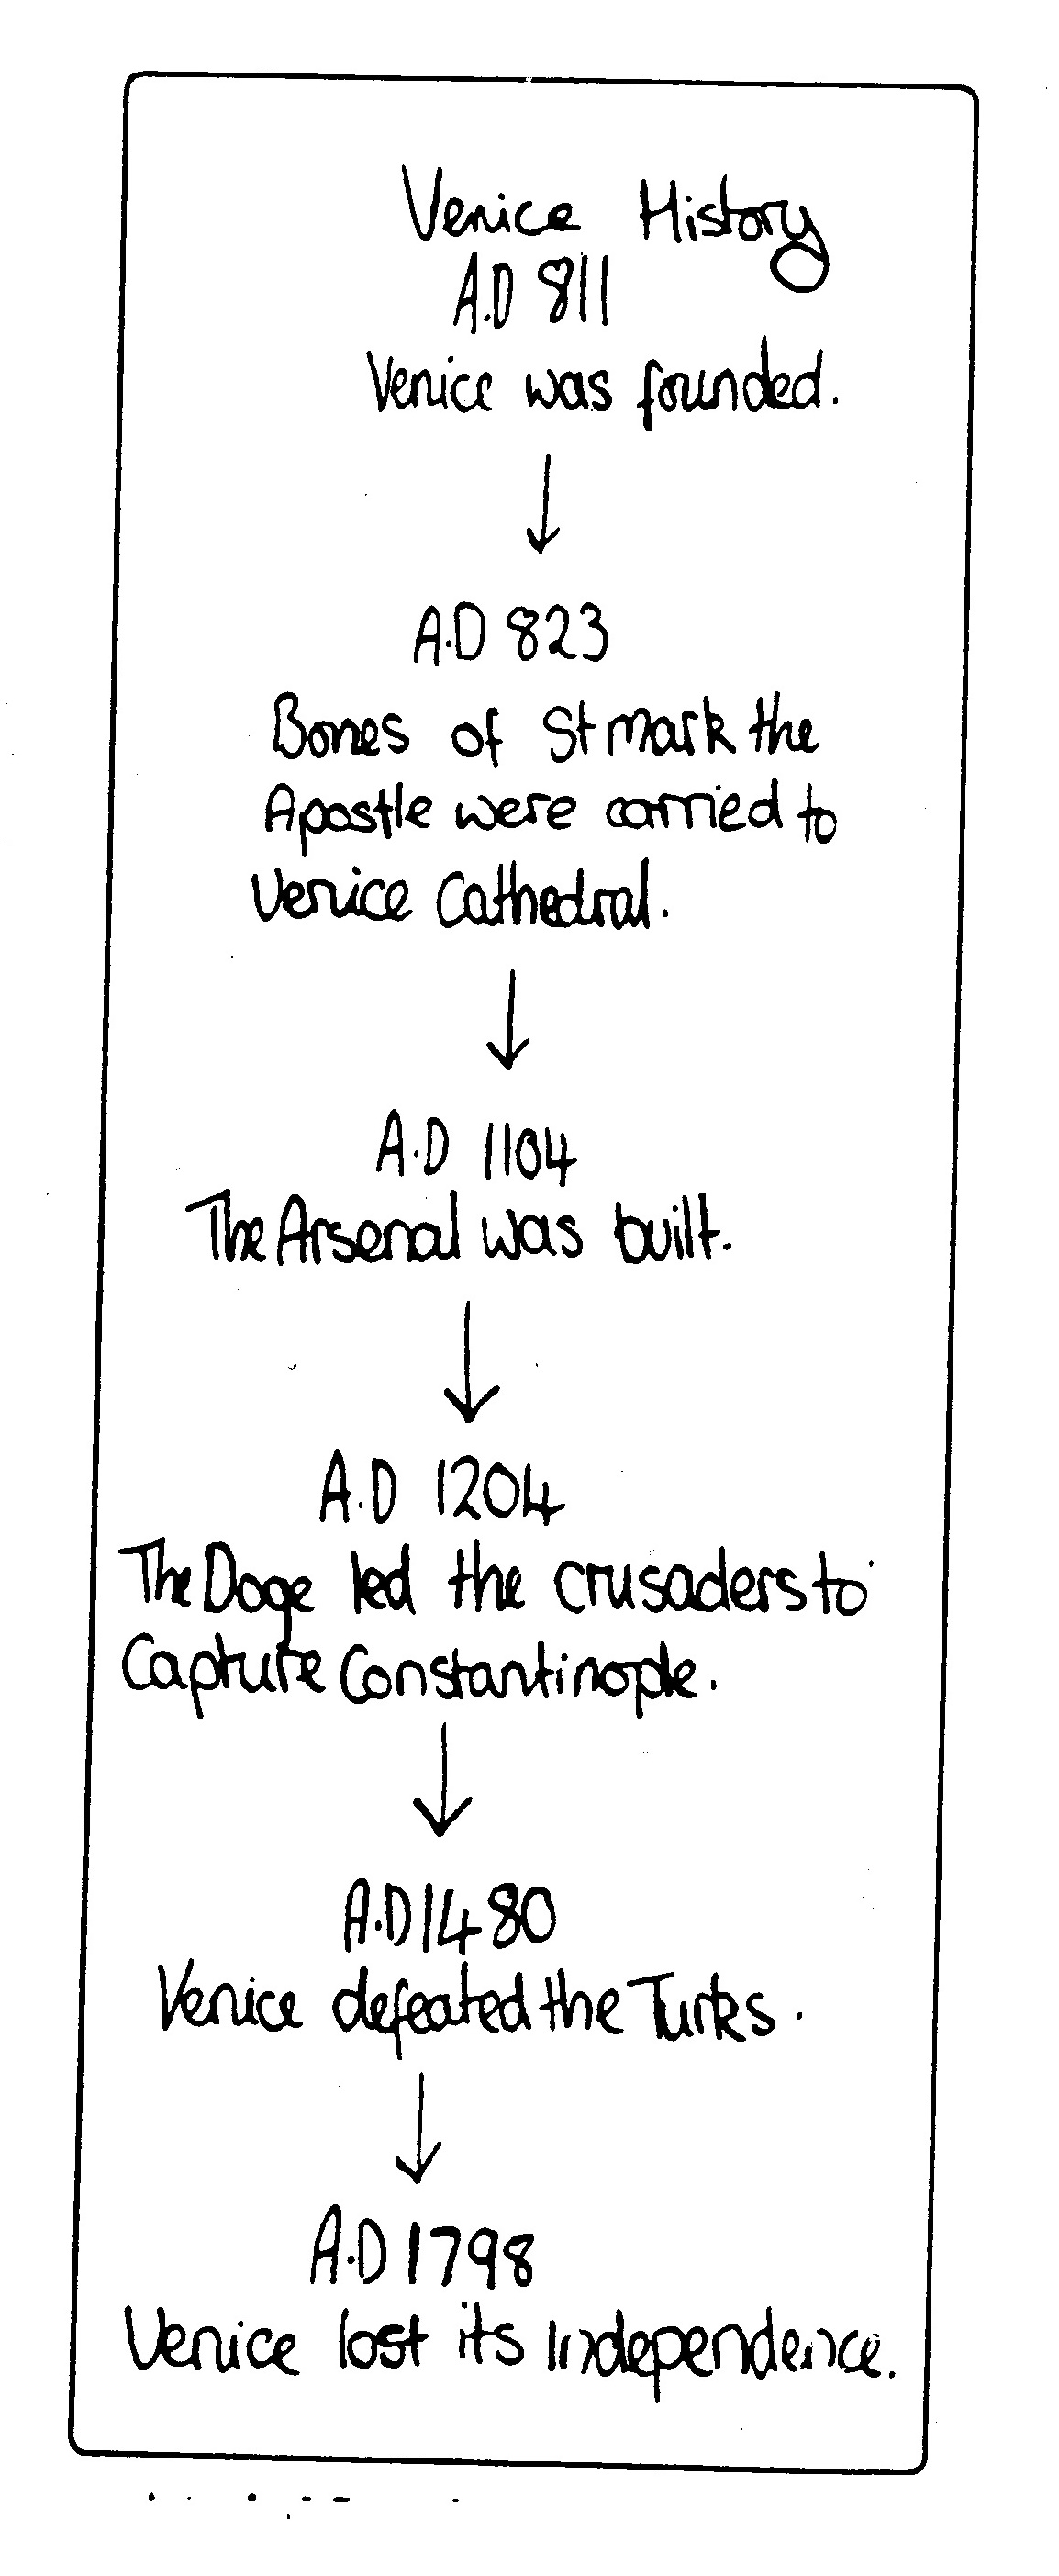 Venice History
A.D 811
Venice was founded.
A.D 823
Bones of St Mark the
Apostle were carried to
Venice Cathedral.
A.D 1104
The Arsenal was built.
A.D 1204
The Doge led the crusaders to
Capture Constantinople.
A.D 1480
Venice defeated the Turks.
A.D 1798
Venice lost its Independence.